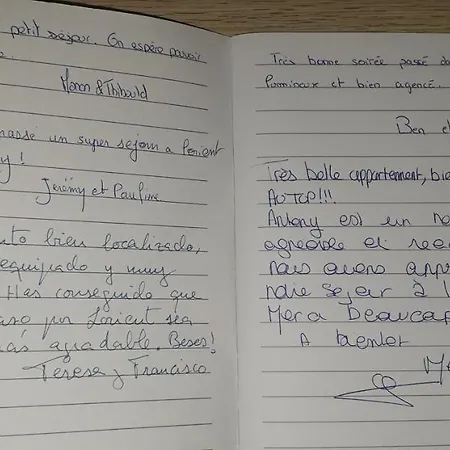 petit séjour. On espère pouvoir
Manon & Thibauld
passé un super séjour a Lorient
y !
Jérémy et Pauline
nto bien localizado,
equipado y muy
Has conseguido que
aso por Lorient sea
más agradable. Besos!
Terese y Francisco
Très bonne soirée passé da
lumineux et bien agencé.
Ben et
Très belle appartement, bie
AU TOP!!!
Antony est un
agréable et
nous avons appr
notre séjour à l
Merci Beaucap
A bientot